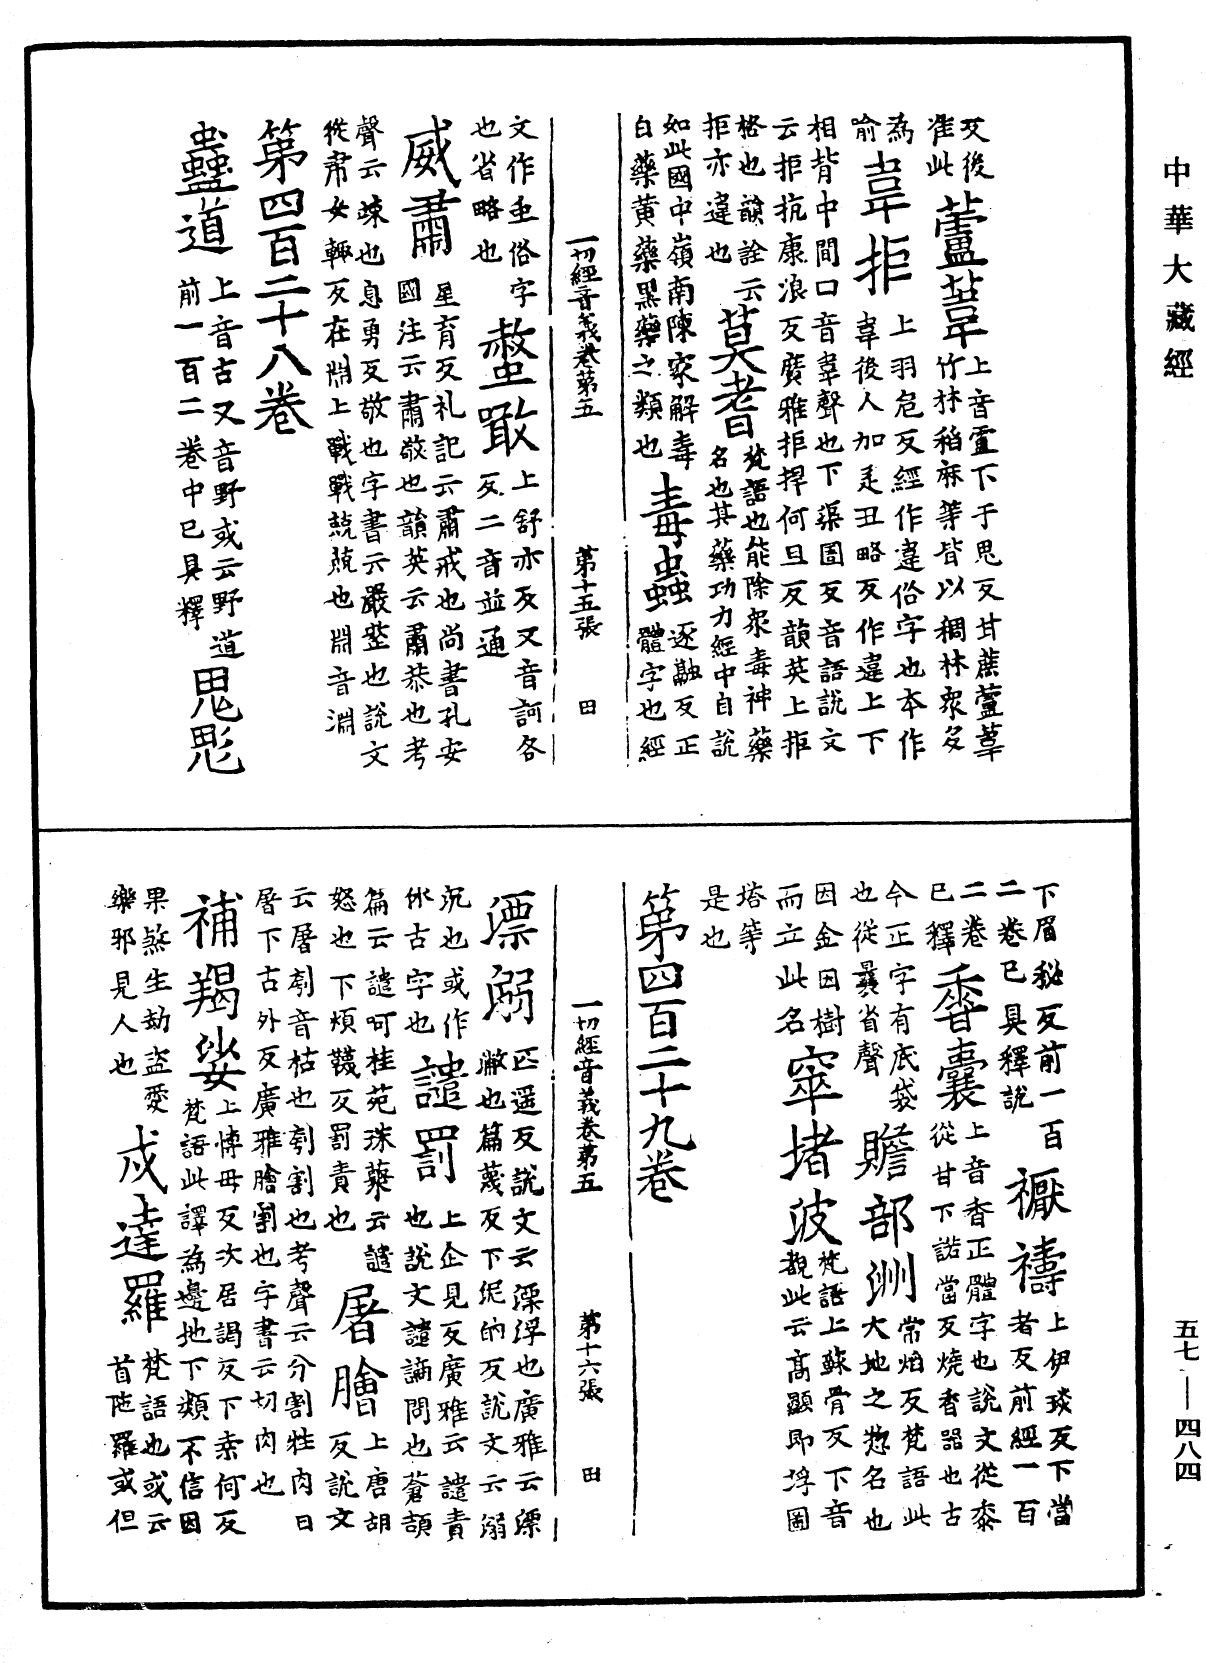 中華大藏經
反後
准此
蘆葦
上音靈下于思反甘蔗蘆葦
竹林稻麻等皆以稠林衆多
為
喻
韋拒
上羽危反經作違俗字也本作
韋後人加辵丑略反作違上下
相背中間口音韋聲也下渠圄反音語說文
云拒抗康浪反廣雅拒捍何旦反韻英上拒
格也韻詮云
拒亦違也
莫耆
梵語也能除衆毒神藥
名也其藥功力經中自說
如此國中嶺南陳家解毒
白藥黃藥黑藥之類也
毒蟲
逐融反正
體字也經
一切經音義卷第五 第十五張 田
文作虫俗字
也省略也
螫噉
上舒亦反又音訶各
反二音並通
威肅
星育反礼記云肅戒也尚書孔安
國注云肅敬也韻英云肅恭也考
聲云竦也息勇反敬也字書云嚴整也說文
從肅女輒反在𣶒上戰戰兢兢也𣶒音淵
第四百二十八卷
蠱道
上音古又音野或云野道
前一百二卷中已具釋
鬼魅
下眉秘反前一百
二卷已具釋說
禳禱
上伊琰反下當
者反前經一百
二卷
已釋
香囊
上音香正體字也說文從黍
從甘下諾當反燒香器也古
今正字有底袋
也從㯻省聲
贍部洲
常焰反梵語此
大地之惣名也
因金因樹
而立此名
窣堵波
梵語上蘇骨反下音
覩此云高顯即浮圖
塔等
是也
第四百二十九卷
一切經音義卷第五 第十六張 田
漂溺
匹遥反說文云漂浮也廣雅云漂
潎也篇蔑反下泥的反說文云溺
沉也或作
㲻古字也
譴罰
上企見反廣雅云譴責
也說文譴謫問也蒼頡
篇云譴呵桂苑珠藂云譴
怒也下煩韈反罰責也
屠膾
上唐胡
反說文
云屠刳音枯也刳割也考聲云分割牲肉曰
屠下古外反廣雅膾割也字書云切肉也
補羯娑
上博毋反次居謁反下素何反
梵語此譯為邊地下類不信因
果煞生劫盜愛
樂邪見人也
戍達羅
梵語也或云
首陁羅或但
五七—四八四